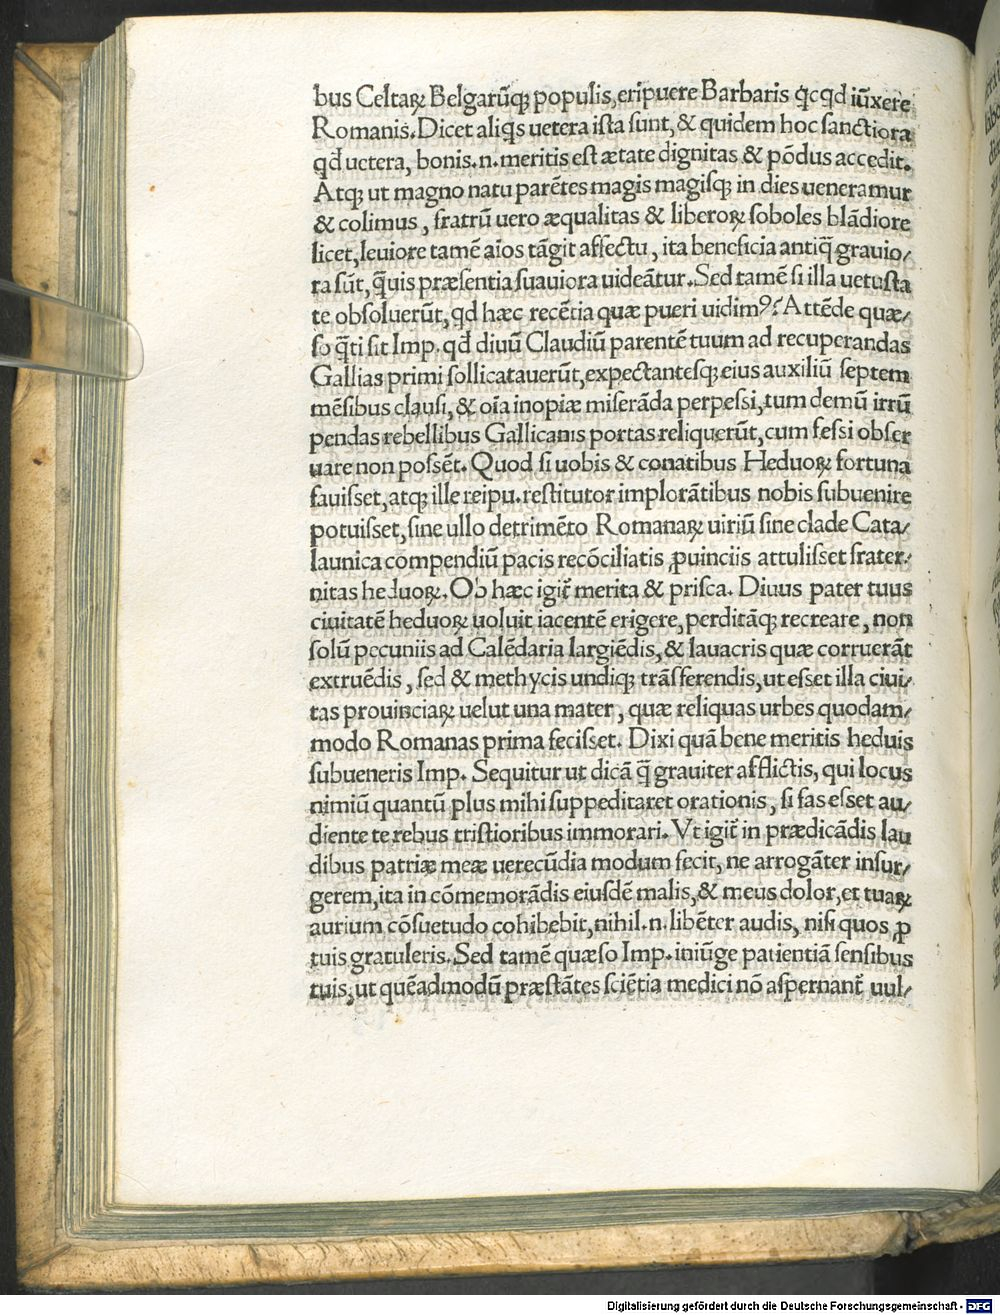 bus Celtaꝝ Belgarūqꝫ populis, eripuere Barbaris qͥcqd iūxere
Romanis. Dicet aliqͥs uetera ista sunt, & quidem hoc sanctiora
qđ uetera, bonis .n. meritis est ætate dignitas & põdus accedit.
Atqꝫ ut magno natu parētes magis magisqꝫ in dies ueneramur
& colimus, fratrū uero æqualitas & liberoꝝ soboles blādiore
licet, leuiore tamē aīos tāgit affectu, ita beneficia antiq̄ grauio/
ra sūt, q̄uis præsentia suauiora uideātur. Sed tamē si illa uetusta
te obsoluerūt, qd hæc recētia quæ pueri uidimꝰ? Attēde quæ/
so q̄ti sit Imp. qđ diuū Claudiū parentē tuum ad recuperandas
Gallias primi sollicatauerūt, expectantesqꝫ eius auxiliū septem
mēsibus clausi, & oīa inopiæ miserāda perpessi, tum demū irrū
pendas rebellibus Gallicanis portas reliquerūt, cum fessi obser
uare non possēt. Quod si uobis & conatibus Heduoꝝ fortuna
fauisset, atqꝫ ille reipu. restitutor implorātibus nobis subuenire
potuisset, sine ullo detrimēto Romanaꝝ uiriū sine clade Cata/
launica compendiū pacis recōciliatis ꝓuinciis attulisset frater/
nitas heduoꝝ. Ob hæc igit̃ merita & prisca. Diuus pater tuus
ciuitatē heduoꝝ uoluit iacentē erigere, perditāqꝫ recreare, non
solū pecuniis ad Calēdaria largiēdis, & lauacris quæ corruerāt
extruēdis, sed & methycis undiqꝫ trāsferendis, ut esset illa ciui/
tas prouinciaꝝ uelut una mater, quæ reliquas urbes quodam/
modo Romanas prima fecisset. Dixi quā bene meritis heduis
subueneris Imp. Sequitur ut dicā q̄ grauiter afflictis, qui locus
nimiū quantū plus mihi suppeditaret orationis, si fas esset au/
diente te rebus tristioribus immorari. Vt igit̃ in prædicādis lau
dibus patriæ meæ uerecūdia modum fecit, ne arrogāter insur/
gerem, ita in cōmemorādis eiusdē malis, & meus dolor, et tuaꝝ
aurium cōsuetudo cohibebit, nihil .n. libēter audis, nisi quos ꝓ
tuis gratuleris. Sed tamē quæso Imp. iniūge patientiā sensibus
tuis, ut quēadmodū præstātes sciētia medici nō aspernant̃ uul/
Digitalisierung gefördert durch die Deutsche Forschungsgemeinschaft - DFG